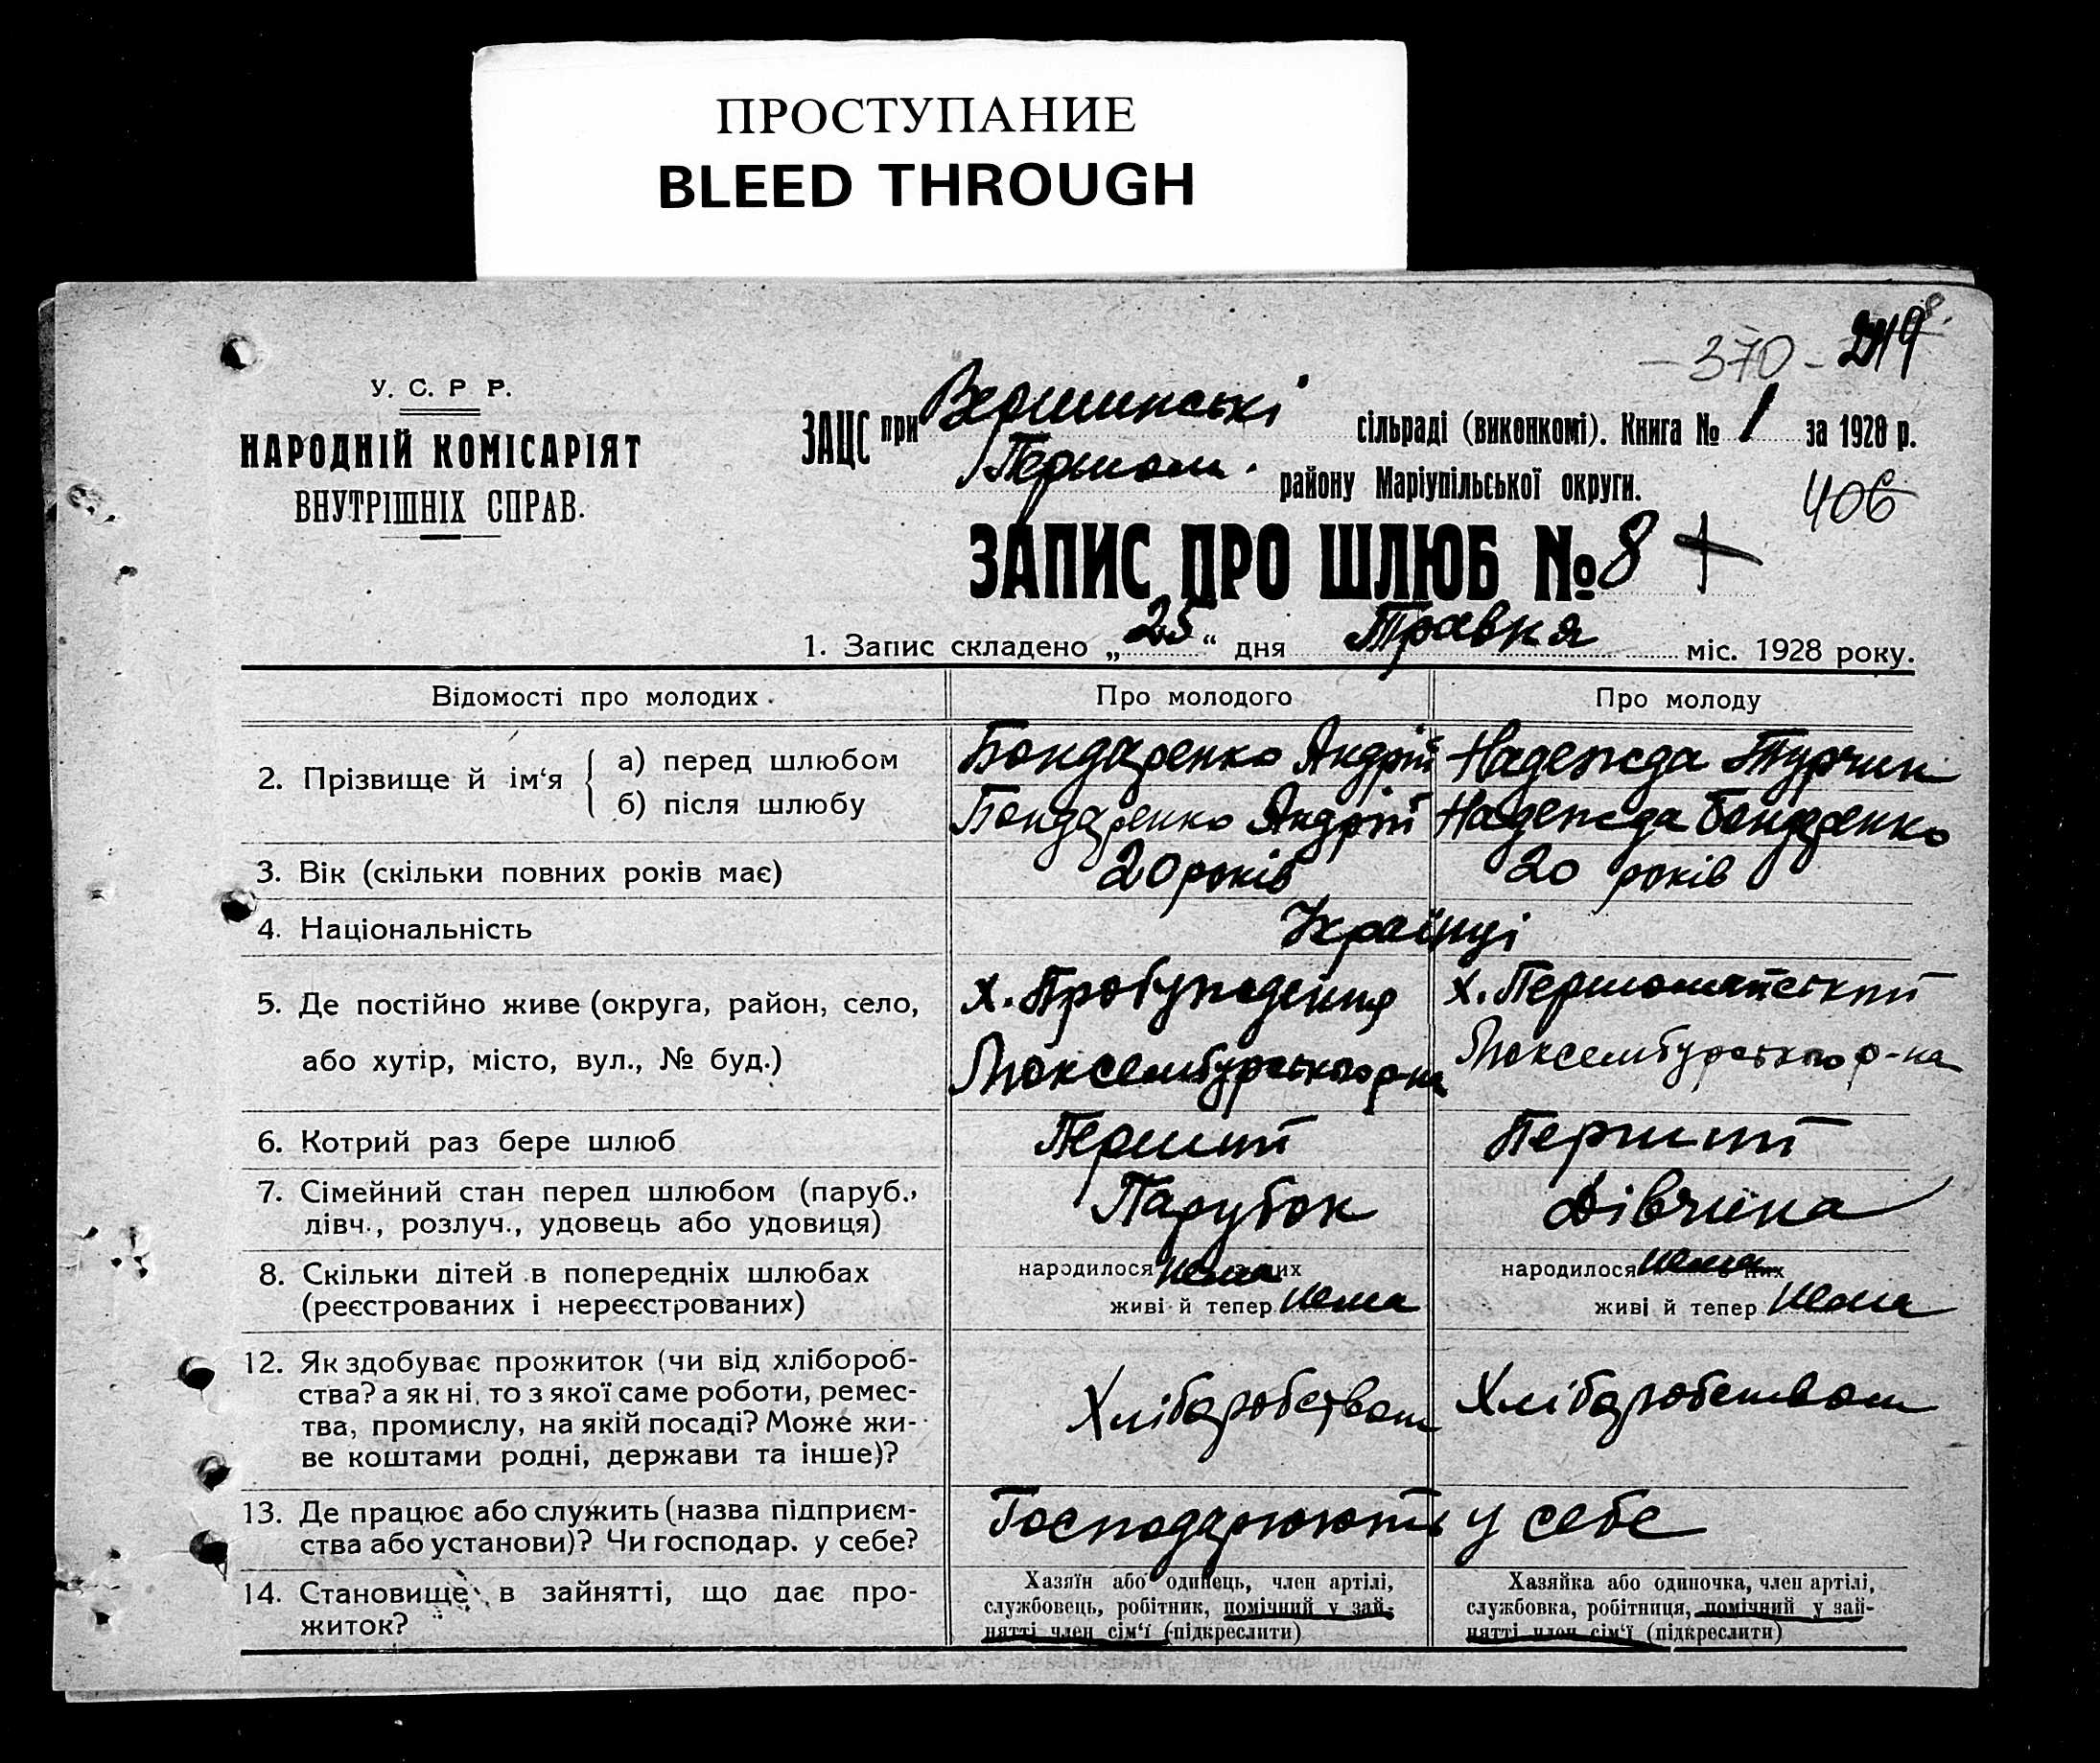 ПРОСТУПАНИЕ
BLEED THROUGH
- 370 -
У. С. Р. Р.
НАРОДНІЙ КОМІСАРІЯТ
ВНУТРІШНІХ СПРАВ.
ЗАЦС при Вершинські сільраді (виконкомі). Книга № 1 за 1928 р.
Першом. району Маріупільської округи.
406
ЗАПИС ПРО ШЛЮБ № 8 +
1. Запис складено „25“ дня Травня міс. 1928 року.
Відомості про молодих. Про молодого Про молоду
2. Прізвище й ім‘я { а) перед шлюбом Бондаренко Андрій Надежда Турчин
б) після шлюбу Бондаренко Андрій Надежда Бондаренко
3. Вік (скільки повних років має) 20 років 20 років
4. Національність Українці
5. Де постійно живе (округа, район, село, х. Пробуждения х. Першомайський
або хутір, місто, вул., № буд.) Люксембурського р-на Люксембурського р-на
6. Котрий раз бере шлюб Перший Перший
7. Сімейний стан перед шлюбом (паруб., Парубок Дівчина
дівч., розлуч., удовець або удовиця)
8. Скільки дітей в попередніх шлюбах народилося нема з них народилося нема з них
(реєстрованих і нереєстрованих) живі й тепер нема живі й тепер нема
12. Як здобуває прожиток (чи від хлібороб-
ства? а як ні, то з якої саме роботи, ремес- Хліборобством Хліборобством
тва, промислу, на якій посаді? Може жи-
ве коштами родні, держави та інше)?
13. Де працює або служить (назва підприєм- Господарюють у себе
ства або установи)? Чи господар. у себе?
14. Становище в зайнятті, що дає про- Хазяїн або одинець, член артілі, Хазяйка або одиночка, член артілі,
житок? службовець, робітник, помічний у зай- службовка, робітниця, помічний у зай-
нятті член сім‘ї (підкреслити) нятті член сім‘ї (підкреслити)